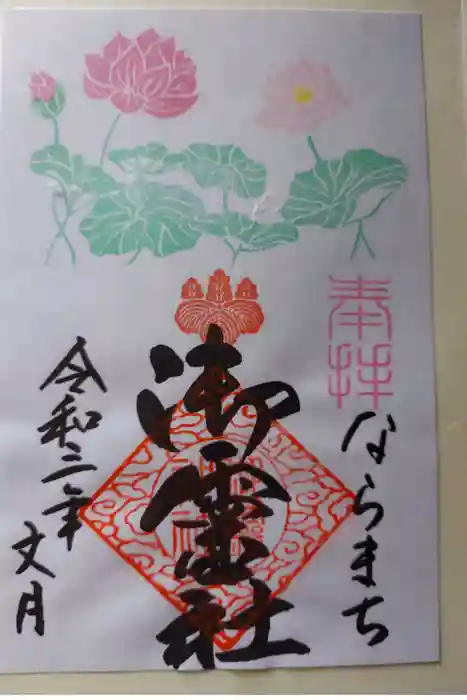 奉拝
ならまち
御霊社
令和二年
文月